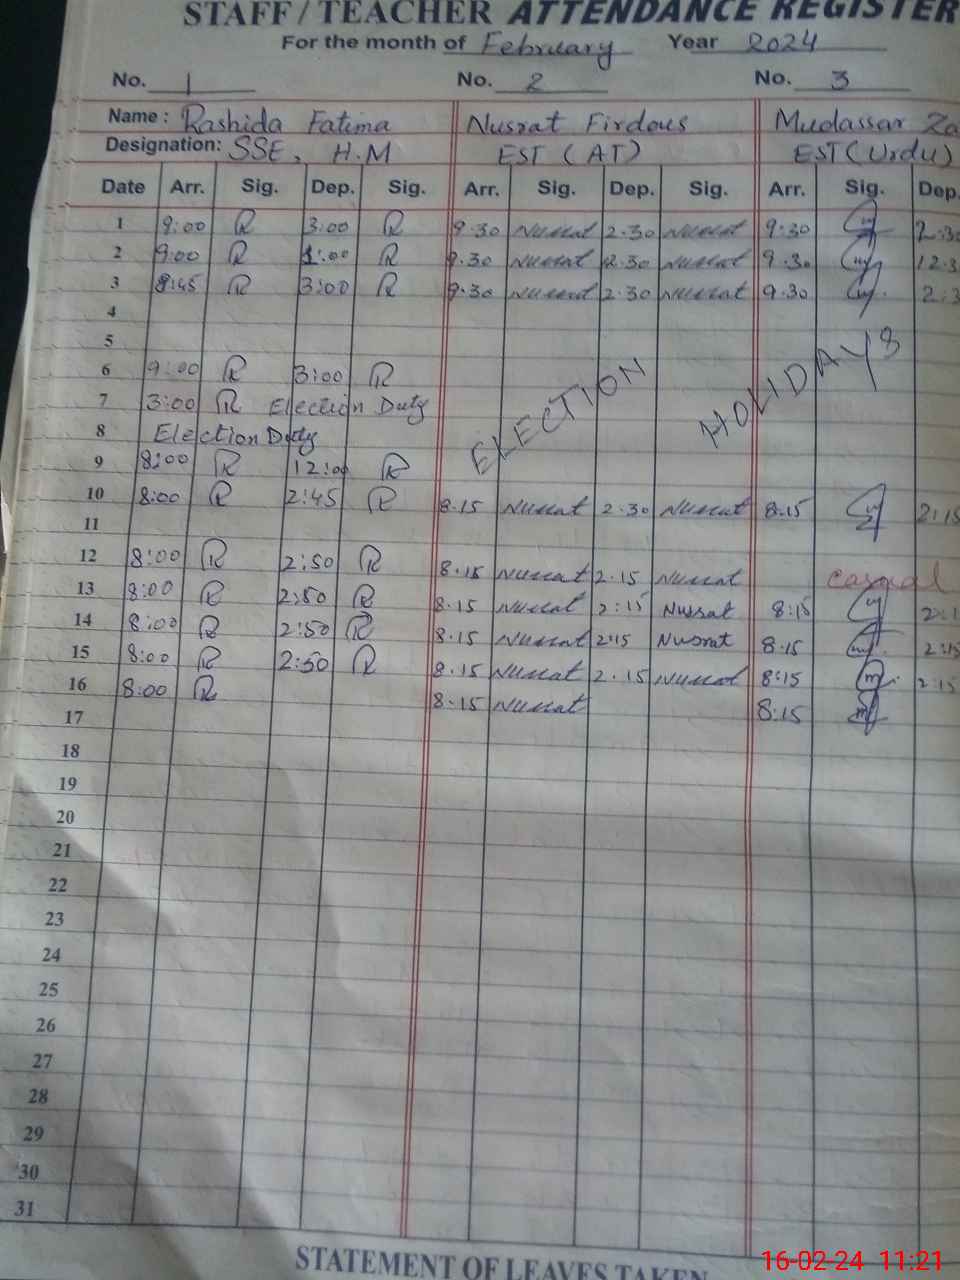 STAFF/TEACHER ATTENDANCE REGISTER
For the month of February Year 2024
No. 1 No. 2 No. 3
Name : Rashida Fatima Nusrat Firdous Mudassar Za
Designation: SSE, H.M EST (AT) EST (Urdu)
Date Arr. Sig. Dep. Sig. Arr. Sig. Dep. Sig. Arr. Sig. Dep.
1 9:00 R 3:00 R 9.30 Nusrat 2.30 Nusrat 9.30 2.30
2 9:00 R 1:00 R 9.30 Nusrat 12.30 Nusrat 9.30 12.3
3 8:45 R 3:00 R 9.30 Nusrat 2.30 Nusrat 9.30 2:3
4
5
6 9:00 R 3:00 R ELECTION HOLIDAYS
7 3:00 R Election Duty
8 Election Duty
9 8:00 R 12:00 R
10 8:00 R 2:45 R 8.15 Nusrat 2.30 Nusrat 8.15 2:15
11
12 8:00 R 2:50 R 8.15 Nusrat 2.15 Nusrat casual
13 8:00 R 2:50 R 8.15 Nusrat 2:15 Nusrat 8:15 2:1
14 8:00 R 2:50 R 8.15 Nusrat 2:15 Nusrat 8.15 2:15
15 8:00 R 2:50 R 8.15 Nusrat 2.15 Nusrat 8:15 2:15
16 8:00 R 8:15 Nusrat 8:15
17
18
19
20
21
22
23
24
25
26
27
28
29
30
31
STATEMENT OF LEAVES TAKEN
16-02-24 11:21